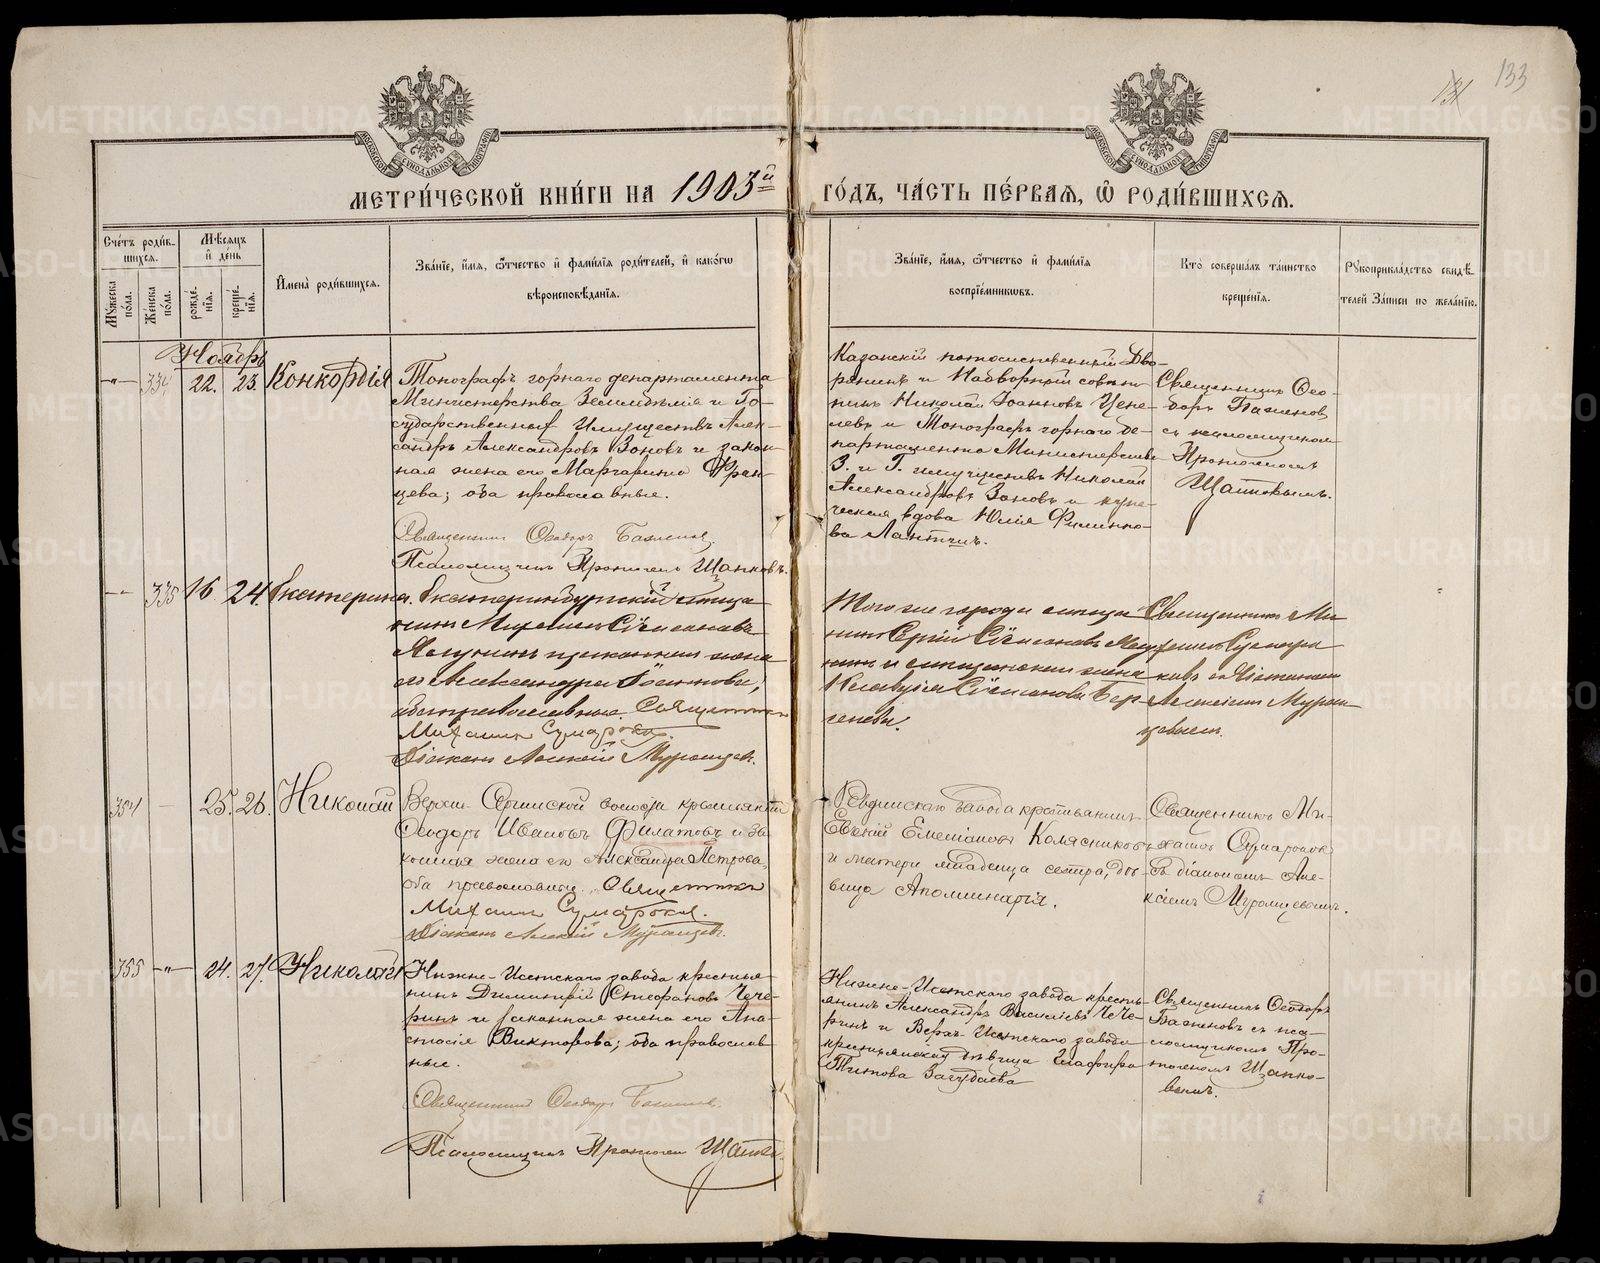 131 133
МОСКОВСКОЙ СѴНОДАЛЬНОЙ ТИПОГРАФІИ
МОСКОВСКОЙ СѴНОДАЛЬНОЙ ТИПОГРАФІИ
МЕТРИ́ЧЕСКОЙ КНИ́ГИ НА 1903й ГО́ДЪ, ЧА́СТЬ ПЕ́РВАЯ, Ѡ҆ РОДИ́ВШИХСЯ.
Сче́тъ роди́в-
шихся.
Мꙋжеска по́ла.
Же́нска по́ла.
Мѣ́сяцъ
и҆ де́нь
рожде́-
нїѧ.
креще́-
нїѧ.
И҆мена̀ роди́вшихся.
Зва́нїе, и҆́мѧ, ѻ҆́тчество и҆ фами́лїѧ роди́телей, и҆ како́гѡ
вѣроисповѣ́данїѧ.
Зва́нїе, и҆́мѧ, ѻ҆́тчество и҆ фами́лїѧ
воспрїе́мникѡвъ.
Кто̀ соверша́лъ та́инство
креще́нїѧ.
Рꙋкоприкла́дство свидѣ́-
телей За́писи по жела́нїю.
Ноябрь
-"- 334 22. 23. Конкордія
Топографъ горнаго департамента
Министерства Земледѣлія и Го-
сударственныхъ Имуществъ Алек-
сандръ Александровъ Зоновъ и закон-
ная жена его Маргарита Фран-
цева; оба православные.
Священникъ Ѳеодоръ Баженовъ.
Псаломщикъ Прокопій Щапковъ.
Казанскій потомственный Дво-
рянинъ и Надворный совѣт-
никъ Николай Іоанновъ
и Топографъ горнаго де-
партамента Министерства
З. и Г. имуществъ Николай
Александровъ Зоновъ и купе-
ческая вдова Юлія Филиппо-
ва
Священникъ Ѳео-
доръ Баженовъ
съ псаломщикомъ
Прокопіемъ
Щапковымъ.
-"- 335 16 24. Екатерина.
Екатеринбургскій мѣща-
нинъ Михаилъ Стефановъ
и законная жена
его Александра
оба православные. Священникъ
Михаилъ Сумароковъ.
Діаконъ Алексій Муромцевъ.
Того же города мѣща-
нинъ Сергій Стефановъ
и мѣщанская жена
Клавдія Стефанова Бер-
сенева.
Священникъ Ми-
хаилъ Сумаро-
ковъ съ Діакономъ
Алексіемъ Муром-
цевымъ.
354 - 25. 26. Николай
Верхне-Сергинской волости крестьянинъ
Ѳеодоръ Ивановъ Филатовъ и за-
конная жена его Александра Петрова,
оба православные. Священникъ
Михаилъ Сумароковъ.
Діаконъ Алексій Муромцевъ.
Ревдинскаго завода крестьянинъ
Евѳимій Емеліановъ Колясниковъ
и матери младенца сестра, дѣ-
вица Аполлинарія.
Священникъ Ми-
хаилъ Сумароковъ
съ діакономъ Але-
ксіемъ Муромцевымъ.
355 -"- 24. 27. Николай
Нижне-Исетскаго завода крестья-
нинъ Димитрій Стефановъ Чече-
ринъ и законная жена его Ана-
стасія Викторова; оба православ-
ные.
Священникъ Ѳеодоръ Баженовъ.
Псаломщикъ Прокопій Щапковъ.
Нижне-Исетскаго завода кресть-
янинъ Александръ Василіевъ Чече-
ринъ и Верхъ-Исетскаго завода
крестьянская дѣвица Глафира
Титова Загудаева
Священникъ Ѳеодоръ
Баженовъ съ пса-
ломщикомъ Про-
копіемъ Щапко-
вымъ.